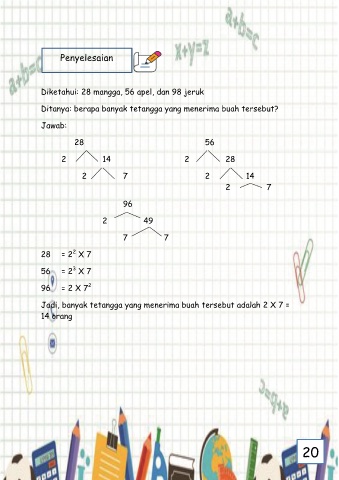 Penyelesaian
a+b=c
x+y=z
a+b=c
Diketahui: 28 mangga, 56 apel, dan 98 jeruk
Ditanya: berapa banyak tetangga yang menerima buah tersebut?
Jawab:
28 56
2 14 2 28
2 7 2 14
2 7
96
2 49
7 7
28 = 2² X 7
56 = 2³ X 7
96 = 2 X 7²
Jadi, banyak tetangga yang menerima buah tersebut adalah 2 X 7 =
14 orang
20